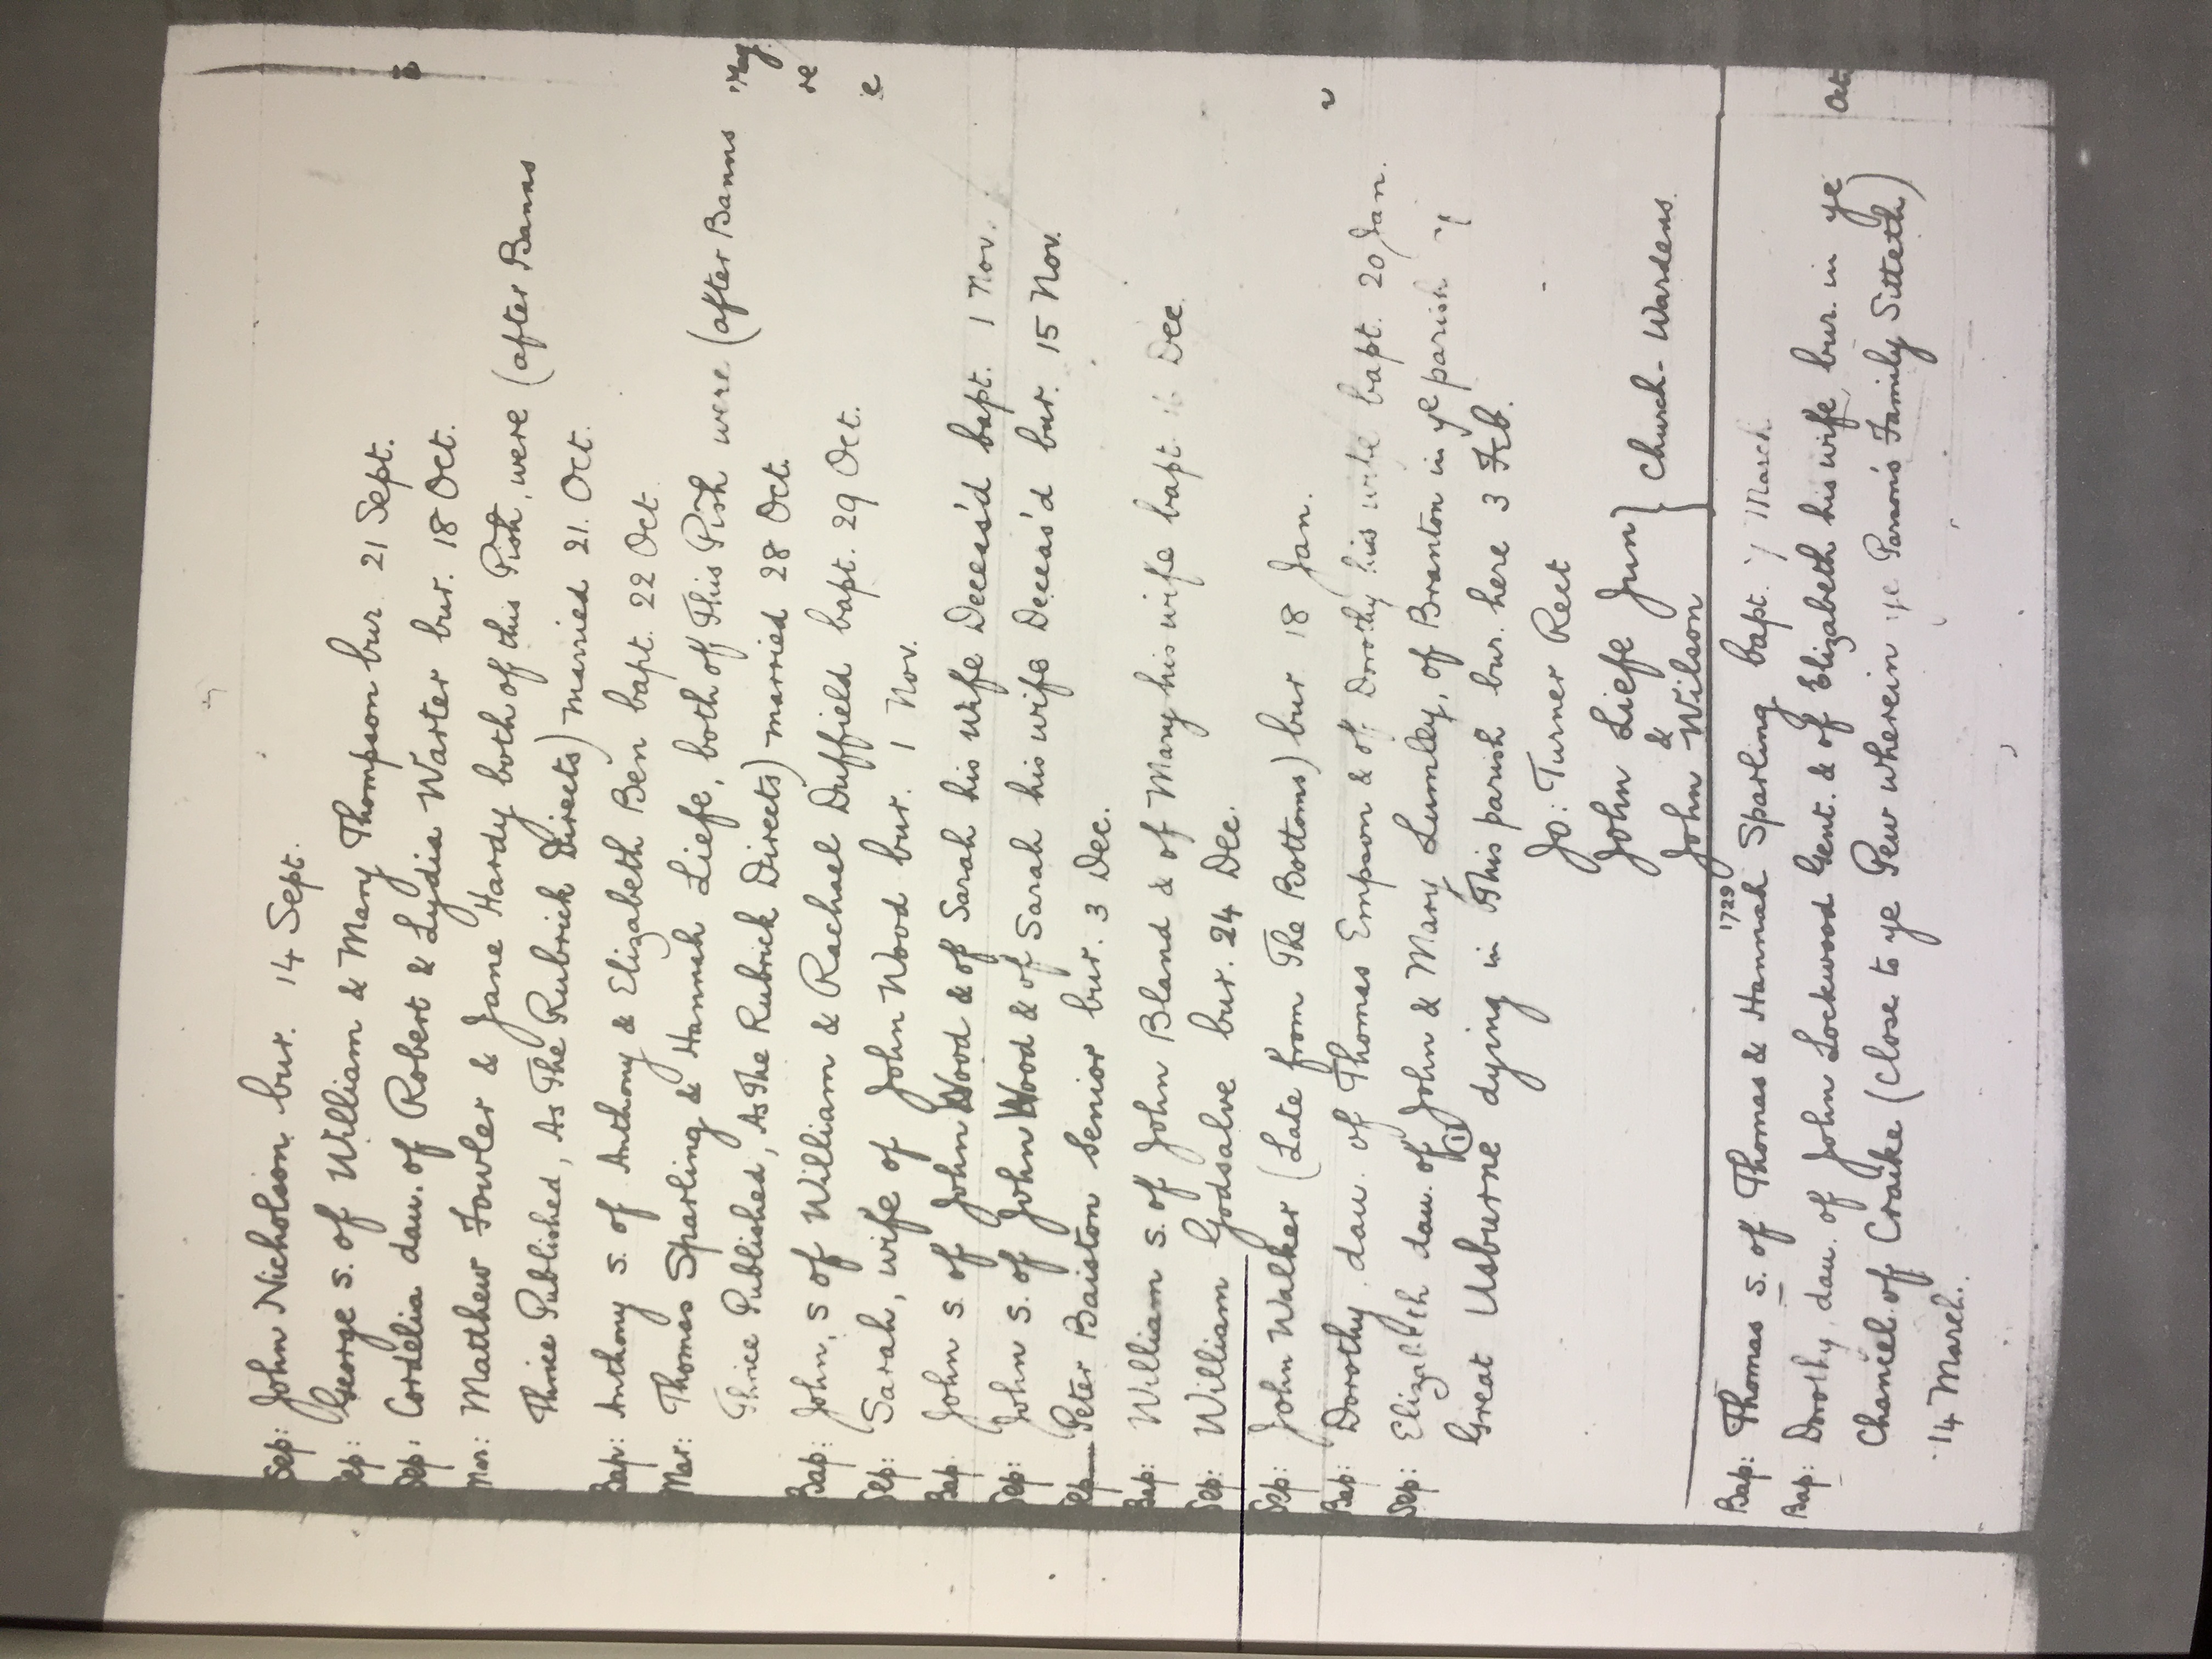 Sep: John Nicholson, bur. 14 Sept.
Sep: George s. of William & Mary Thompson bur. 21 Sept.
Sep: Cordelia dau. of Robert & Lydia Warter bur. 18 Oct.
Mar: Matthew Fowler & Jane Hardy both of this Pish, were (after Banns
Thrice Published, As The Rubrick Directs) married 21. Oct.
Bap: Anthony s. of Anthony & Elizabeth Ben bapt. 22 Oct
Mar: Thomas Sparling & Hannah Liefe, both of This Pish were (after Banns
Thrice Published, As The Rubrick Directs) married 28 Oct.
Bap: John, s of William & Rachael Duffield bapt. 29 Oct.
Sep: Sarah, wife of John Wood bur. 1 Nov.
Bap: John s. of John Wood & of Sarah his Wife Deceas'd bapt. 1 Nov.
Sep: John s. of John Wood & of Sarah his wife Deceas'd bur. 15 Nov.
Sep Peter Baiston senior bur. 3 Dec.
Bap: William s. of John Bland & of Mary his wife bapt. 16 Dec.
Sep: William Godsalve bur. 24 Dec.
Sep: John Walker (Late from The Bottoms) bur 18 Jan.
Bap: Dorothy, dau. of Thomas Empson & of Dorothy his wife bapt. 20 Jan.
Sep: Elizabeth dau. of John & Mary Lumley, of Branton in ye parish of
(1)
Great Usburne dying in This parish bur. here 3 Feb.
Jo: Turner Rect
John Liefe Jun
&
John Wilson
} Church-Wardens.
1729
Bap: Thomas s. of Thomas & Hannah Sparling bapt. 7 March
Bap: Dorothy, dau. of John Lockwood Gent. & of Elizabeth his wife, bur. in ye
Chancel of Craike (Close to ye Pew wherein ye Parson's Family Sitteth)
14 March.
May
re
e
Oct.